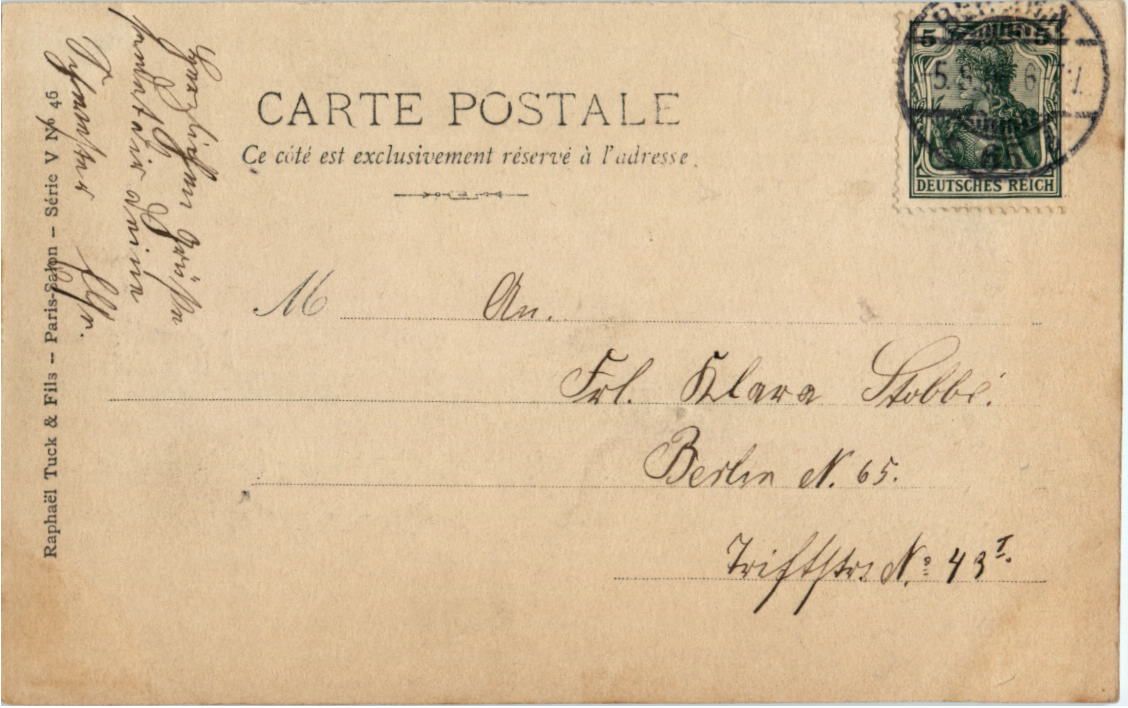 CARTE POSTALE
Ce côté est exclusivement réservé à l'adresse.
Herzlichen Grüße
sendet dir deine
Schwester
Raphaël Tuck & Fils — Paris-Salon — Série V № 46
5 5
DEUTSCHES REICH
BERLIN
65
M An.
Frl. Klara Stobbe.
Berlin N. 65.
Triftstr. No: 43 I.